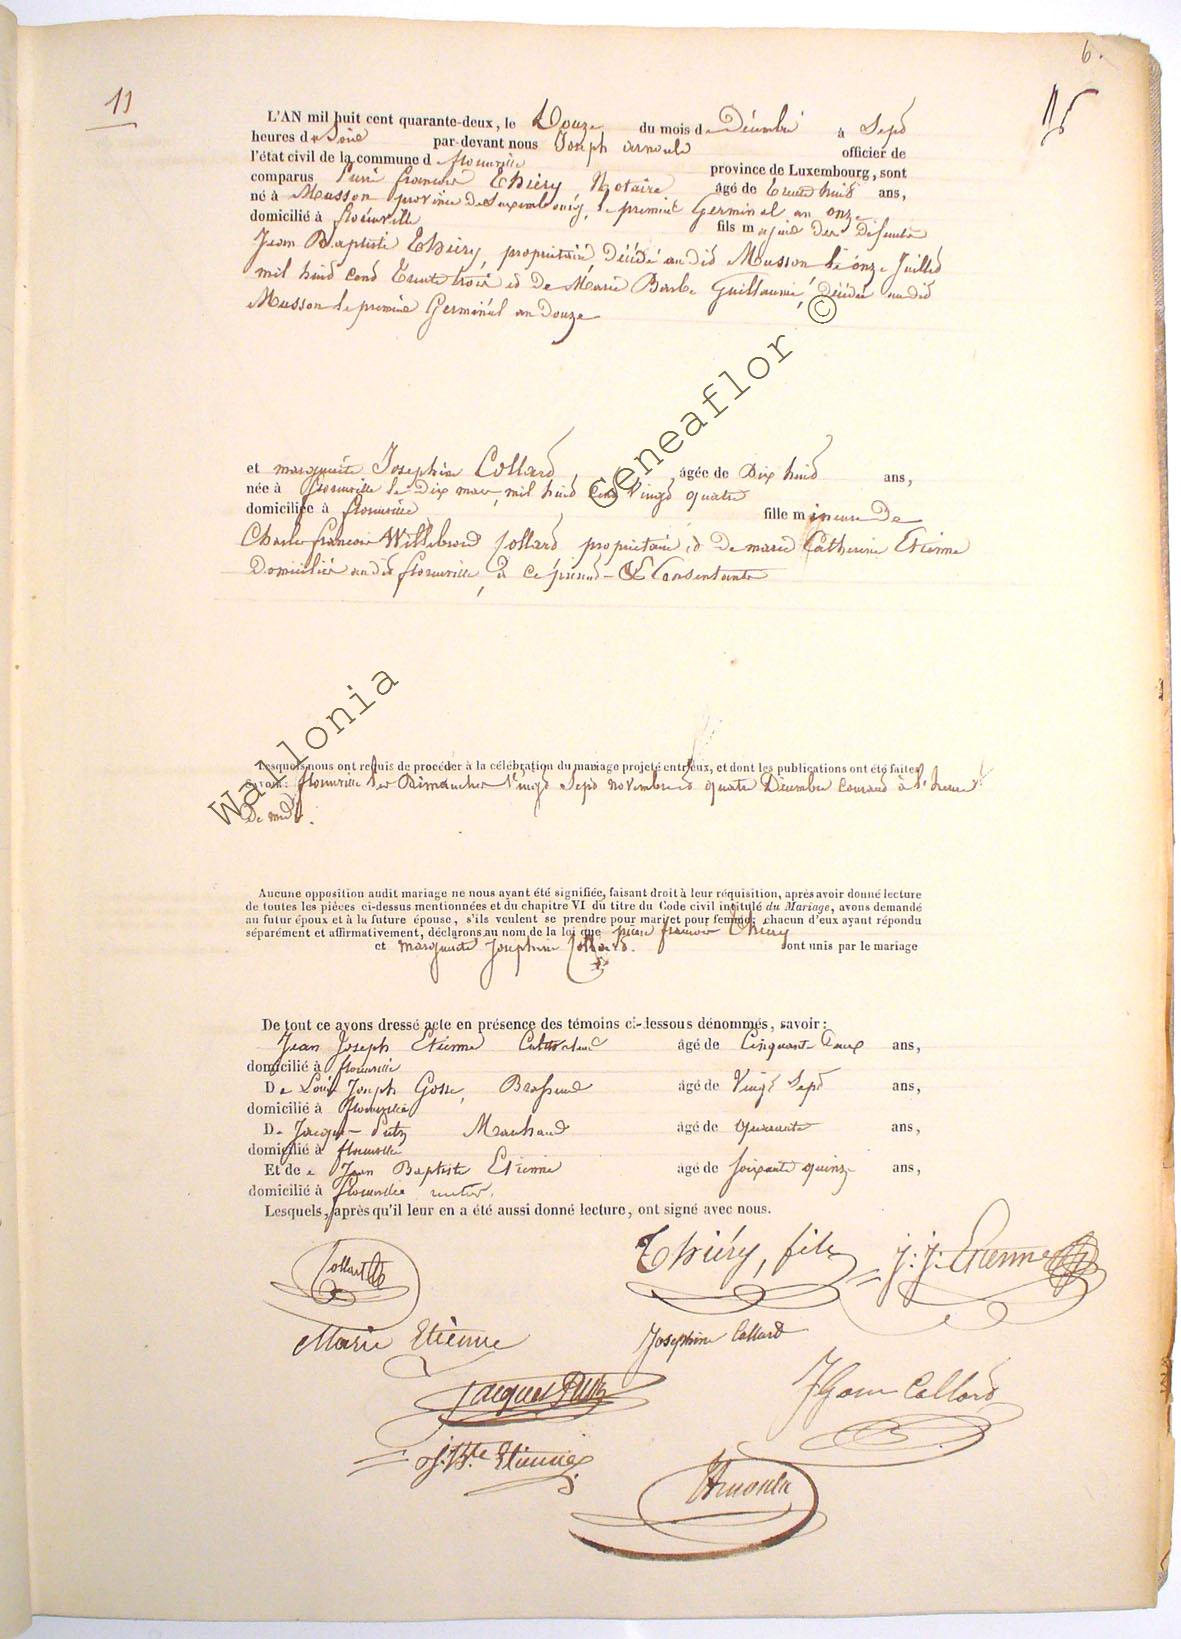 6.
11
L'AN mil huit cent quarante-deux, le Douze du mois de Décembre à Sept
heures du Soir par-devant nous Joseph arnould officier de
l'état civil de la commune de florenville province de Luxembourg, sont
comparus Pierre françois Thiéry, Notaire âgé de trente huit ans,
né à Musson province de Luxembourg, le premier Germinal an onze
domicilié à florenville fils majeur des Défunts
Jean Baptiste Thiéry, propriétaire, décédé au dit Musson le onze Juillet
mil huit cent trente trois et De Marie Barbe Guillaume, décédée au dit
Musson le premier Germinal an Douze
et marguerite Josephine Collard, âgée de Dix huit ans,
née à florenville le Dix mars mil huit cent Vingt quatre
domiciliée à florenville fille mineure De
Charles françois Willebrord Collard propriétaire, et De marie Catherine Etienne
Domiciliés au dit florenville, à ce présents & Consentants
Lesquels nous ont requis de procéder à la célébration du mariage projeté entr'eux, et dont les publications ont été faites
Savoir: florenville les Dimanches Vingt Sept novembre et quatre Décembre courant à l'heure
De midi.
Aucune opposition audit mariage ne nous ayant été signifiée, faisant droit à leur réquisition, après avoir donné lecture
de toutes les pièces ci-dessus mentionnées et du chapitre VI du titre du Code civil intitulé du Mariage, avons demandé
au futur époux et à la future épouse, s'ils veulent se prendre pour mari et pour femme; chacun d'eux ayant répondu
séparément et affirmativement, déclarons au nom de la loi que pierre françois Thiéry
et marguerite Josephine Collard. sont unis par le mariage
De tout ce avons dressé acte en présence des témoins ci-dessous dénommés, savoir:
Jean Joseph Etienne Cultivateur âgé de Cinquante Deux ans,
domicilié à florenville
De Louis Joseph Gosse, Brasseur âgé de Vingt Sept ans,
domicilié à florenville
De Jacques Putz Marchand âgé de quarante ans,
domicilié à florenville
Et de Jean Baptiste Etienne âgé de Soixante quinze ans,
domicilié à florenville rentier.
Lesquels, après qu'il leur en a été aussi donné lecture, ont signé avec nous.
Collard Thiéry, fils J: J. Etienne
Marie Etienne Josephine Collard
Jacques Putz Collard
J. Bte Etienne
Arnould
Wallonia Geneaflor ©